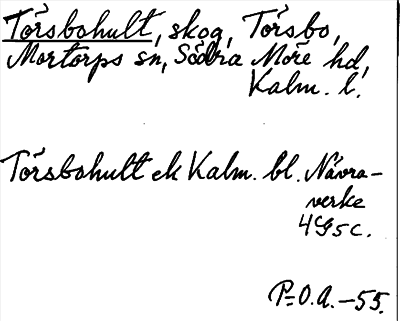 Torsbohult, skog, Torsbo,
Mortorps sn, Södra Möre hd,
Kalm. l.
Torsbohult ek Kalm. bl. Nävra-
verke
4G5c.
P-O.A. -55.